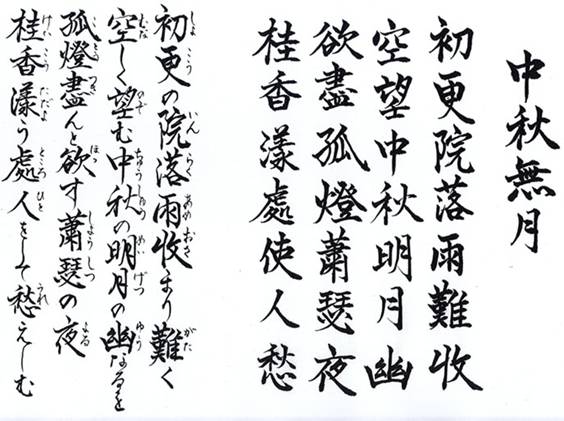 中秋無月
初更院落雨難收
空望中秋明月幽
欲盡孤燈蕭瑟夜
桂香漾處使人愁
初更の院落雨收まり難く
空しく望む中秋の明月の幽なるを
孤燈盡んと欲す蕭瑟の夜
桂香漾う處人をして愁えしむ